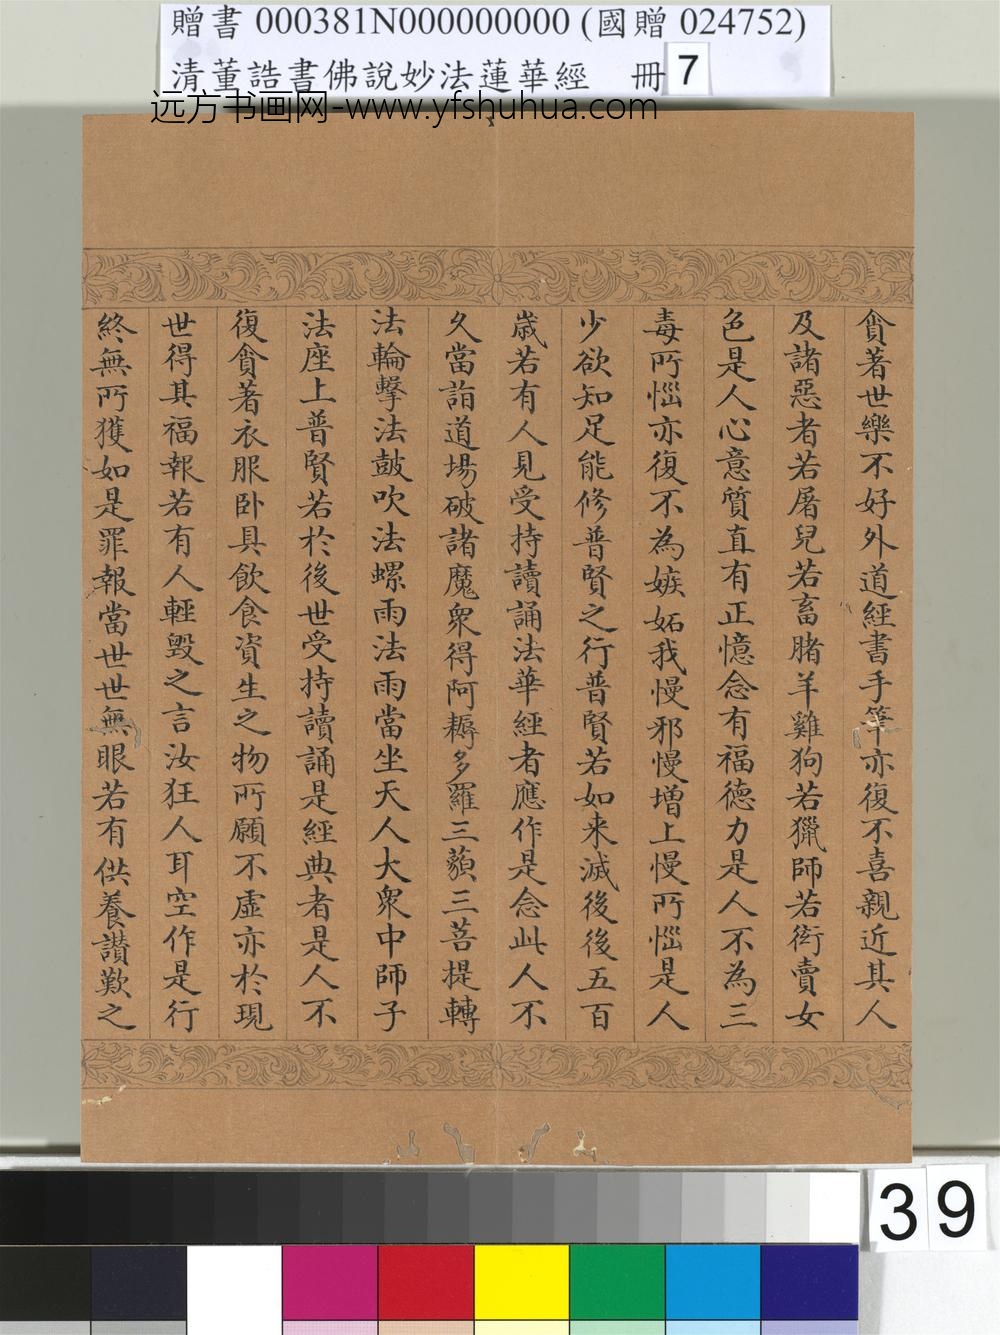 贈書 000381N000000000 (國贈 024752)
清董誥書佛說妙法蓮華經 冊 7
远方书画网-www.yfshuhua.com
貪著世樂不好外道經書手筆亦復不喜親近其人
及諸惡者若屠兒若畜腞羊雞狗若獵師若衒賣女
色是人心意質直有正憶念有福德力是人不為三
毒所惱亦復不為嫉妬我慢邪慢增上慢所惱是人
少欲知足能修普賢之行普賢若如来滅後後五百
歲若有人見受持讀誦法華經者應作是念此人不
久當詣道場破諸魔眾得阿耨多羅三藐三菩提轉
法輪擊法鼓吹法螺雨法雨當坐天人大眾中師子
法座上普賢若於後世受持讀誦是經典者是人不
復貪著衣服卧具飲食資生之物所願不虛亦於現
世得其福報若有人輕毀之言汝狂人耳空作是行
終無所獲如是罪報當世世無眼若有供養讚歎之
39